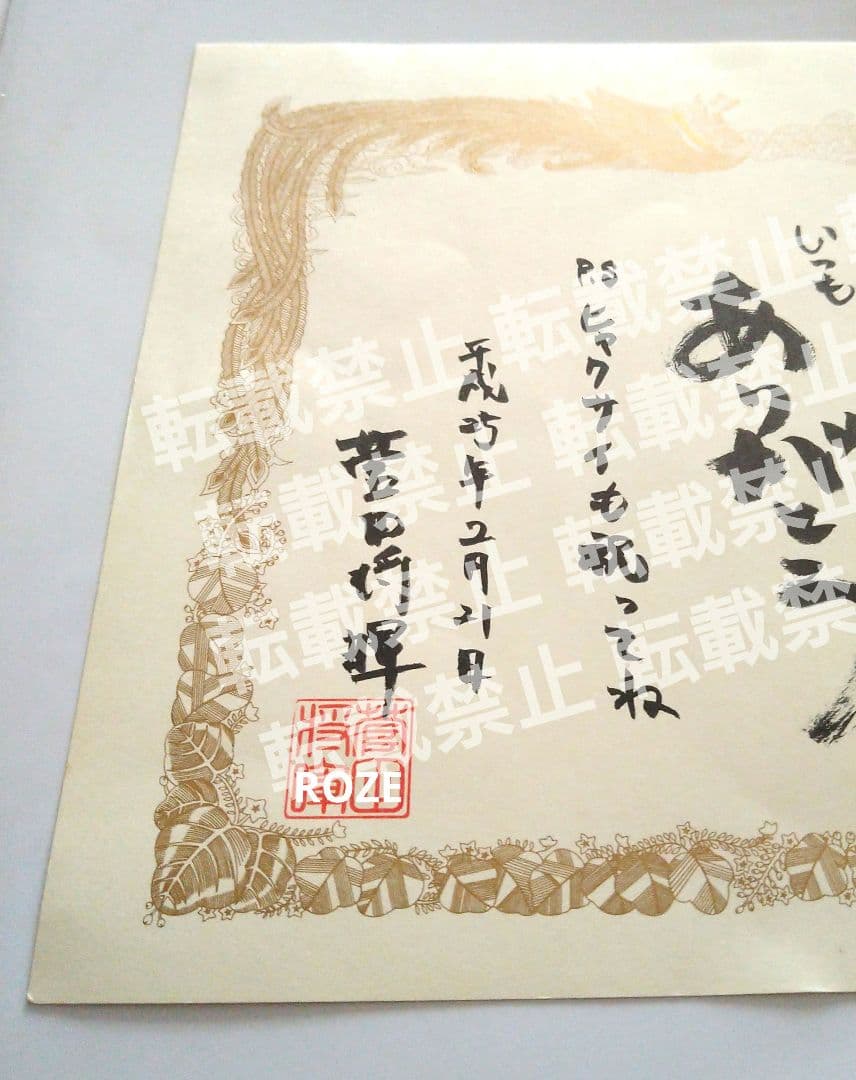 いつも
ありがとう
P.S ヒャクサイも祝ってね
平成25年2月21日
菅田将暉
菅田
将暉
ROZE
転載禁止 転載禁止
転載禁止 転載禁止
転載禁止 転載禁止
転載禁止 転載禁止
転載禁止